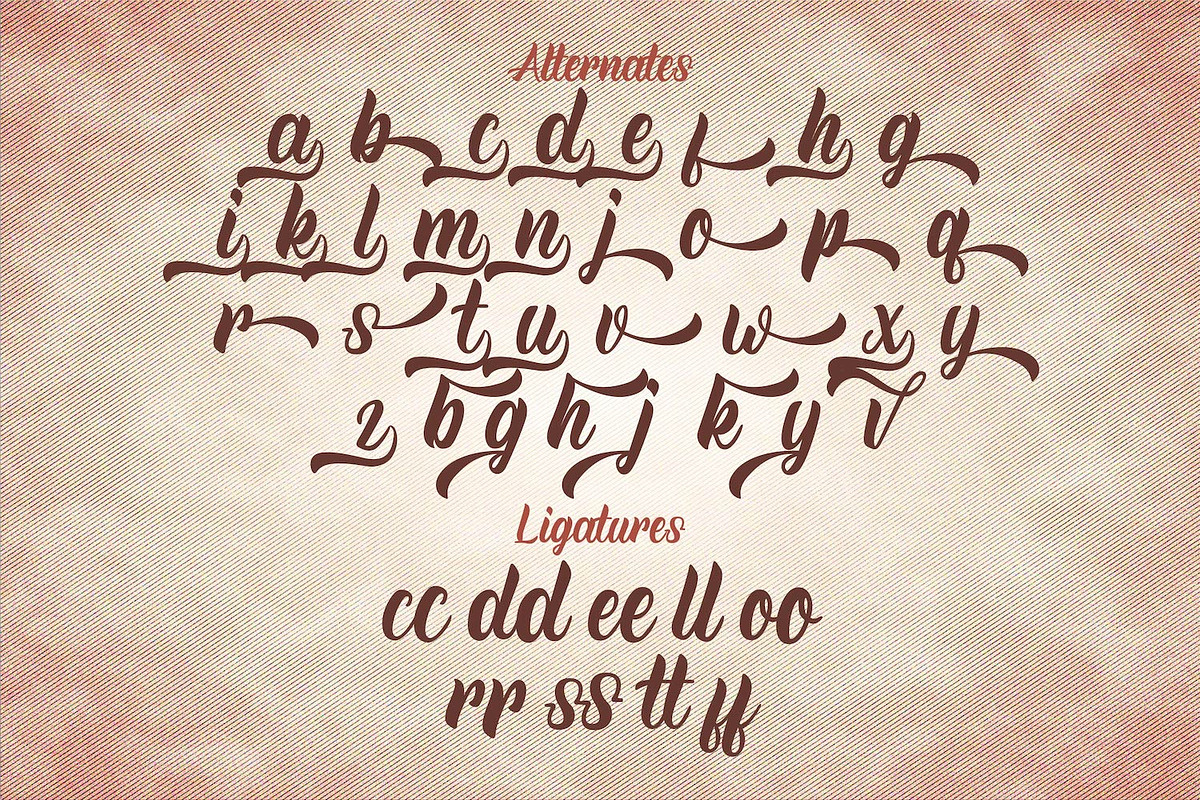 Alternates
a b c d e f h g
i k l m n j o p q
r s t u v w x y
z b g h j k y v
Ligatures
cc dd ee ll oo
rr ss tt ff